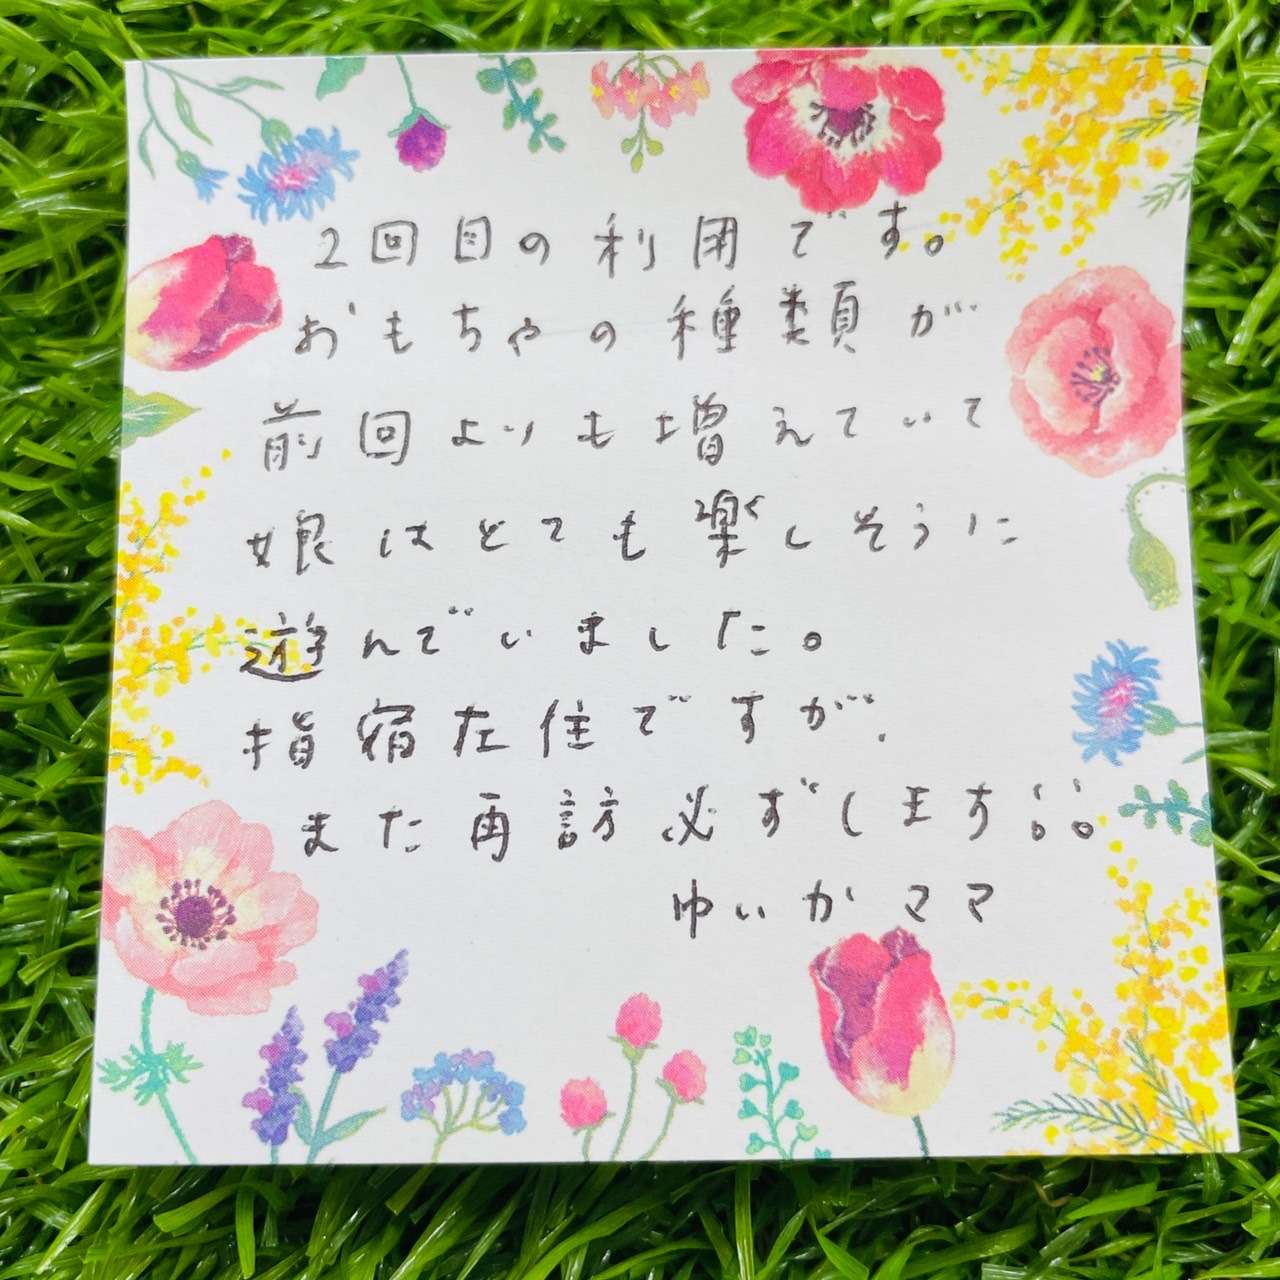 2回目の利用です。
おもちゃの種類が
前回よりも増えていて
娘はとても楽しそうに
遊んでいました。
指宿在住ですが、
また再訪必ずします!!。
ゆいかママ